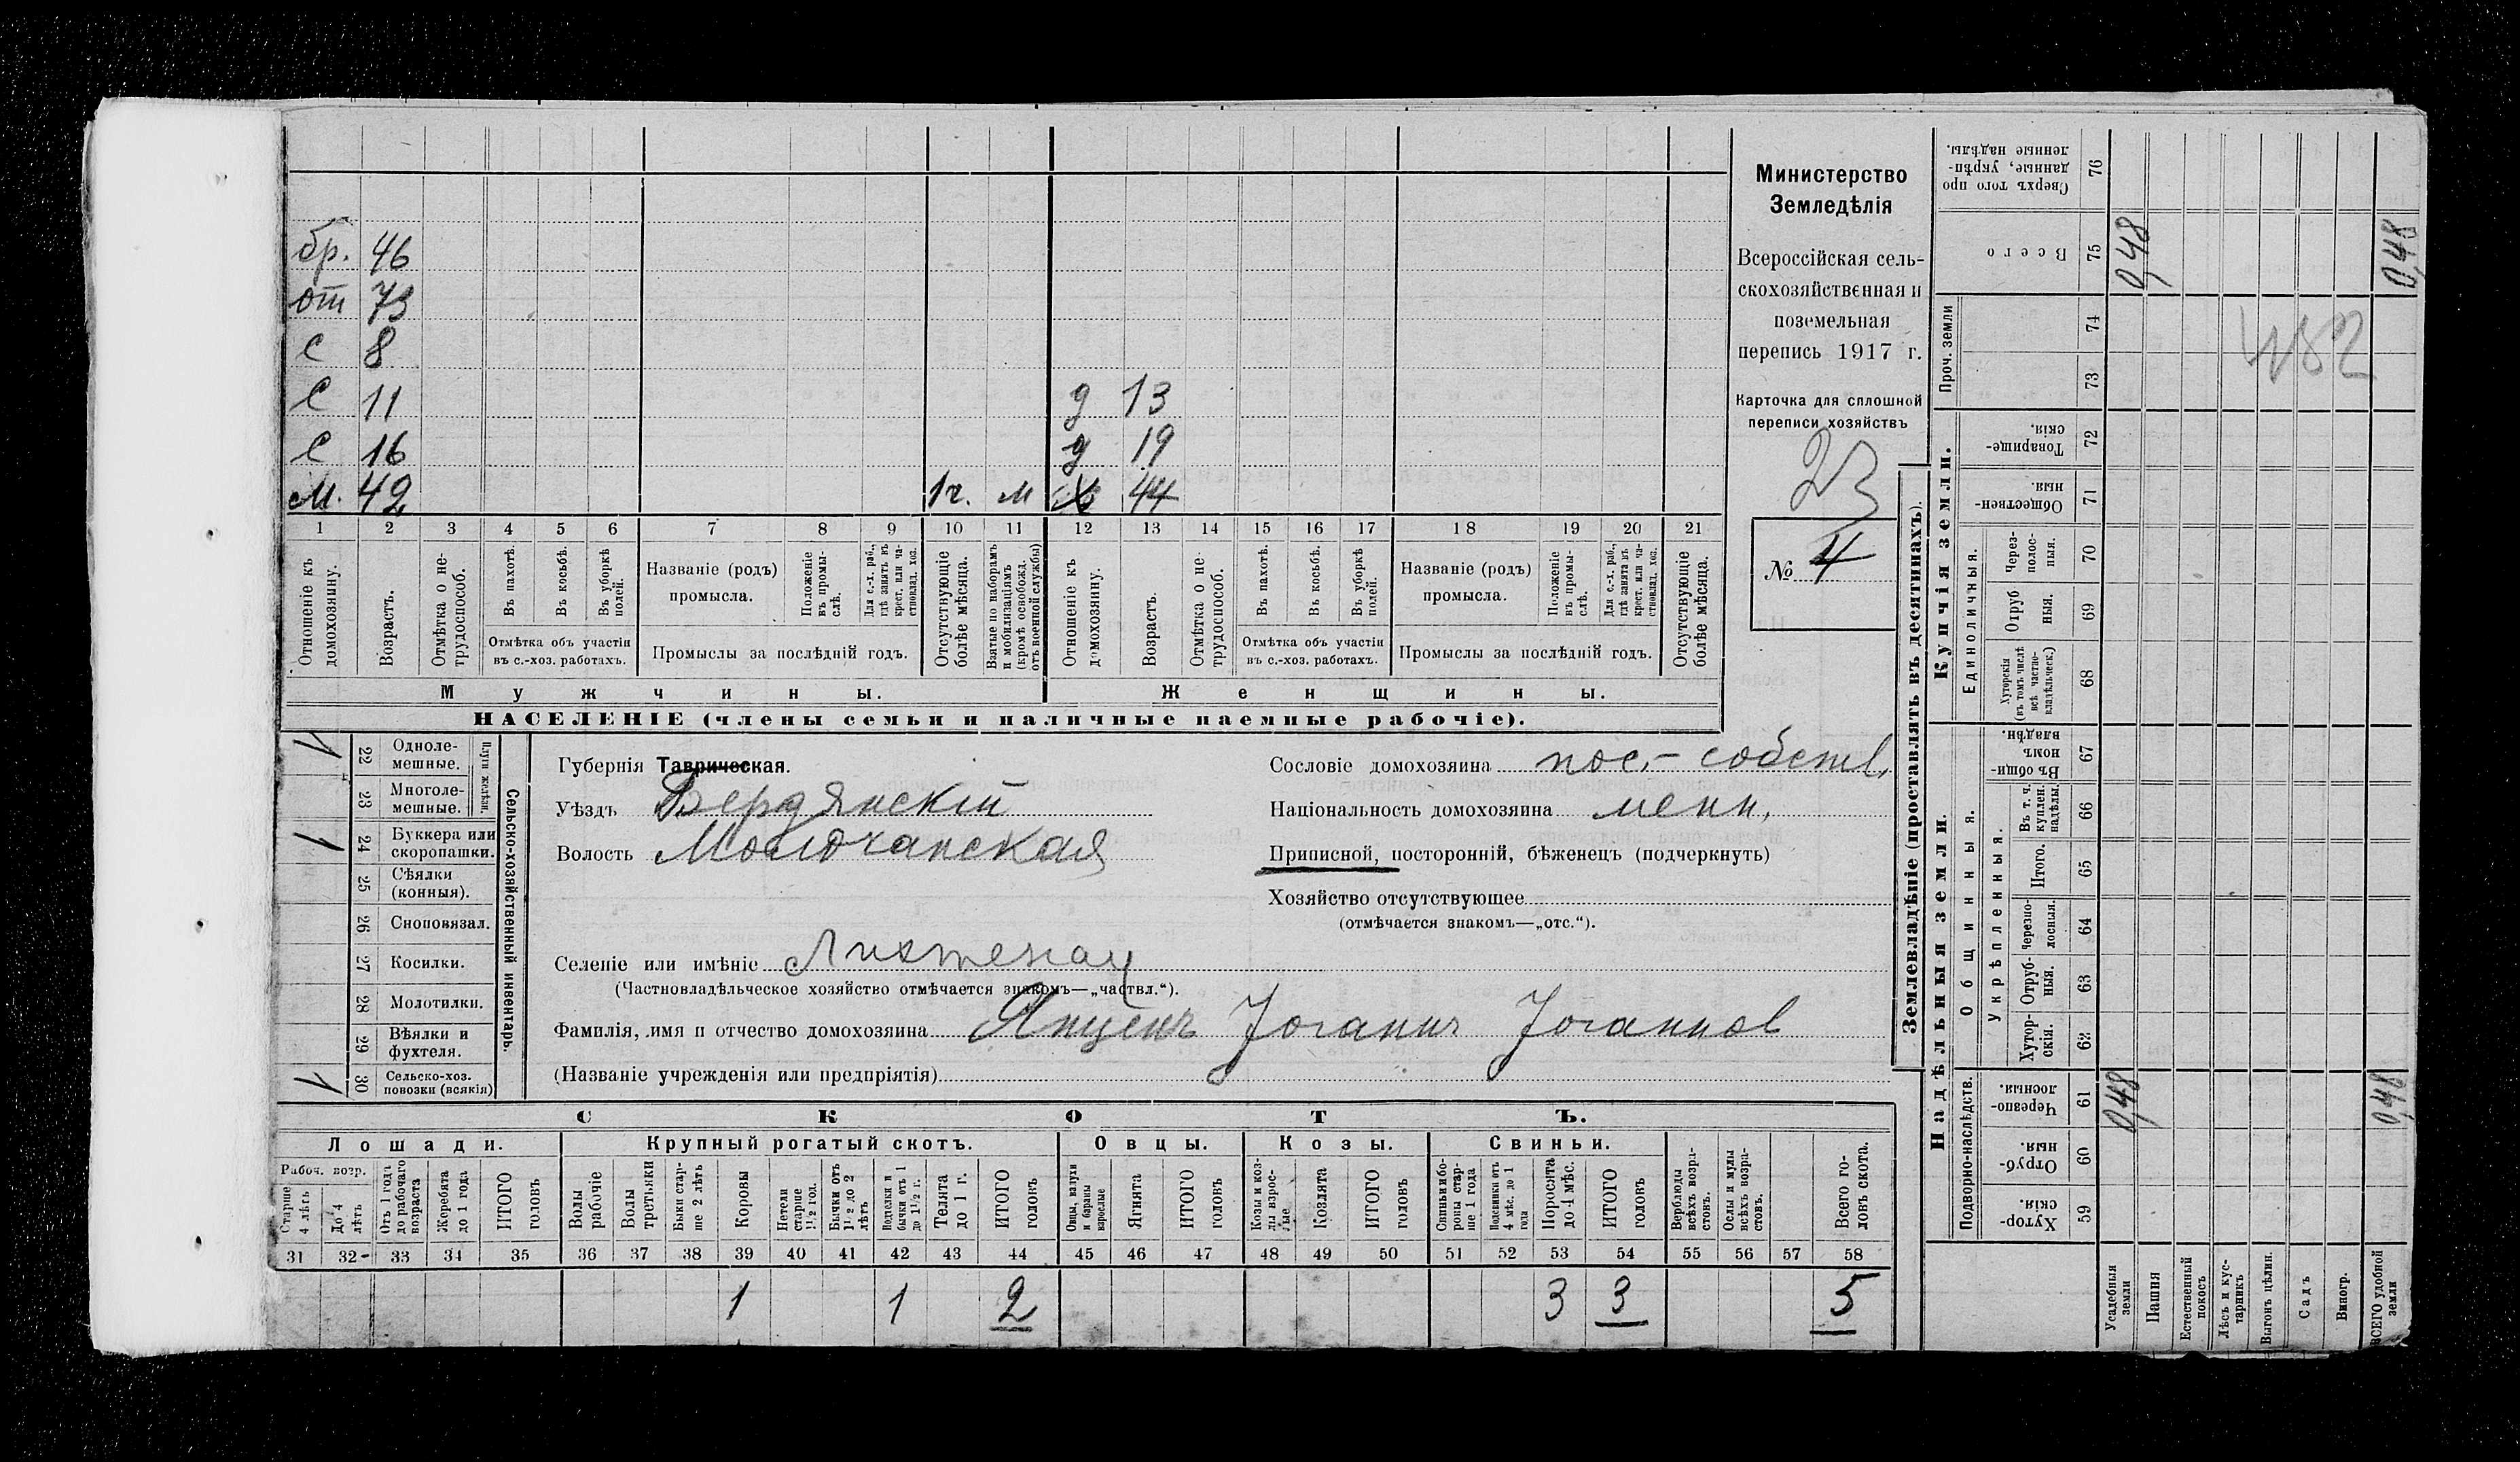 бр. 46
от 73
с 8
с 11 д 13
с 16 д 19
м. 42 1 г. м ж 44
1 2 3 4 5 6 7 8 9 10 11 12 13 14 15 16 17 18 19 20 21
Отношеніе къ домохозяину.
Возрастъ.
Отмѣтка о не-трудоспособ.
Въ пахотѣ.
Въ косьбѣ.
Въ уборкѣ полей.
Отмѣтка объ участіи
въ с.-хоз. работахъ.
Названіе (родъ)
промысла.
Положеніе въ промы-слѣ.
Для с.-х. раб., гдѣ занятъ въ крест. или ча-стновлад. хоз.
Промыслы за послѣдній годъ.
Отсутствующіе болѣе мѣсяца.
Взятые по наборамъ и мобилизаціямъ (кромѣ освобожд. отъ военной службы)
Отношеніе къ домохозяину.
Возрастъ.
Отмѣтка о не-трудоспособ.
Въ пахотѣ.
Въ косьбѣ.
Въ уборкѣ полей.
Отмѣтка объ участіи
въ с.-хоз. работахъ.
Названіе (родъ)
промысла.
Положеніе въ промы-слѣ.
Для с.-х. раб., гдѣ занята въ крест. или ча-стновлад. хоз.
Промыслы за послѣдній годъ.
Отсутствующіе болѣе мѣсяца.
Мужчины. Женщины.
НАСЕЛЕНІЕ (члены семьи и наличные наемные рабочіе).
Министерство
Земледѣлія
Всероссійская сель-
скохозяйственная и
поземельная
перепись 1917 г.
Карточка для сплошной
переписи хозяйствъ
23
№ 4
Сельско-хозяйственный инвентарь.
Плуги желѣзн.
1 22 Одноле-мешные.
23 Многоле-мешные.
1 24 Буккера или скоропашки.
25 Сѣялки (конныя).
26 Сноповязал.
27 Косилки.
28 Молотилки.
29 Вѣялки и фухтеля.
1 30 Сельско-хоз. повозки (всякія)
Губернія Таврическая.
Уѣздъ Бердянскій
Волость Молочанская
Сословіе домохозяина пос.- собств.
Національность домохозяина менн.
Приписной, посторонній, бѣженецъ (подчеркнуть)
Хозяйство отсутствующее
(отмѣчается знакомъ—„отс.“).
Селеніе или имѣніе Лихтенау
(Частновладѣльческое хозяйство отмѣчается знакомъ—„частвл.“).
Фамилія, имя и отчество домохозяина Янценъ Іоганнъ Іоганнов
(Названіе учрежденія или предпріятія)
СКОТЪ.
Лошади. Крупный рогатый скотъ. Овцы. Козы. Свиньи.
Рабоч. возр.
Старше 4 лѣтъ
До 4 лѣтъ
Отъ 1 года до рабочаго возраста
Жеребята до 1 года
ИТОГО головъ
Волы рабочіе
Волы третьяки
Быки стар-ше 2 лѣтъ
Коровы
Нетели старше 1 1/2 год.
Бычки отъ 1 1/2 до 2 лѣтъ
Подтелки и бычки отъ 1 до 1 1/2 г.
Телята до 1 г.
ИТОГО головъ
Овцы, валухи и бараны взрослые
Ягнята
ИТОГО головъ
Козы и коз-лы взрос-лые
Козлята
ИТОГО головъ
Свиньи и бо-ровы стар-ше 1 года
Подсвинки отъ 4 мѣс. до 1 года
Поросята до 4 мѣс.
ИТОГО головъ
Верблюды всѣхъ возра-стовъ.
Ослы и мулы всѣхъ возра-стовъ.
Всего го-ловъ скота.
31 32 33 34 35 36 37 38 39 40 41 42 43 44 45 46 47 48 49 50 51 52 53 54 55 56 57 58
1 1 2 3 3 5
Землевладѣніе (проставлять въ десятинахъ).
Надѣльныя земли.
Купчія земли.
Проч. земли
Подворно-наслѣдств.
Общинныя.
Укрѣпленныя.
Единоличныя.
Сверхъ того про-данные, укрѣп-ленные надѣлы. 76
Всего 75 0,48 0,48
74
73
Товарище-скія. 72
Обществен-ныя. 71
Через-полос-ныя. 70
Отруб-ныя. 69
Хуторскія (въ томъ числѣ всѣ частно-владѣльческ.) 68
Въ общи-номъ владѣн. 67
Въ т. ч. куплен. надѣлы. 66
Итого. 65
Черезпо-лосныя. 64
Отруб-ныя. 63
Хутор-скія. 62
Черезпо-лосныя. 61 0,48 0,48
Отруб-ныя. 60
Хутор-скія. 59
Усадебныя земли
Пашня
Естественный покосъ
Лѣсъ и кус-тарникъ
Выгонъ цѣлин.
Садъ
Виногр.
ВСЕГО удобной земли